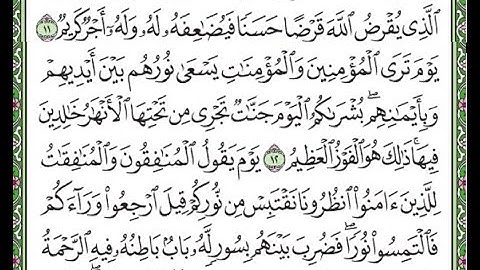 الَّذِى يُقْرِضُ اللَّهَ قَرْضًا حَسَنًا فَيُضَٰعِفَهُۥ لَهُۥ وَلَهُۥٓ أَجْرٌ كَرِيمٌ ١١
يَوْمَ تَرَى الْمُؤْمِنِينَ وَالْمُؤْمِنَٰتِ يَسْعَىٰ نُورُهُم بَيْنَ أَيْدِيهِمْ
وَبِأَيْمَٰنِهِم بُشْرَىٰكُمُ الْيَوْمَ جَنَّٰتٌ تَجْرِى مِن تَحْتِهَا الْأَنْهَٰرُ خَٰلِدِينَ
فِيهَا ۚ ذَٰلِكَ هُوَ الْفَوْزُ الْعَظِيمُ ١٢ يَوْمَ يَقُولُ الْمُنَٰفِقُونَ وَالْمُنَٰفِقَٰتُ
لِلَّذِينَ ءَامَنُوا۟ انظُرُونَا نَقْتَبِسْ مِن نُّورِكُمْ قِيلَ ارْجِعُوا۟ وَرَآءَكُمْ
فَالْتَمِسُوا۟ نُورًا ۖ فَضُرِبَ بَيْنَهُم بِسُورٍ لَّهُۥ بَابٌۢ بَاطِنُهُۥ فِيهِ الرَّحْمَةُ